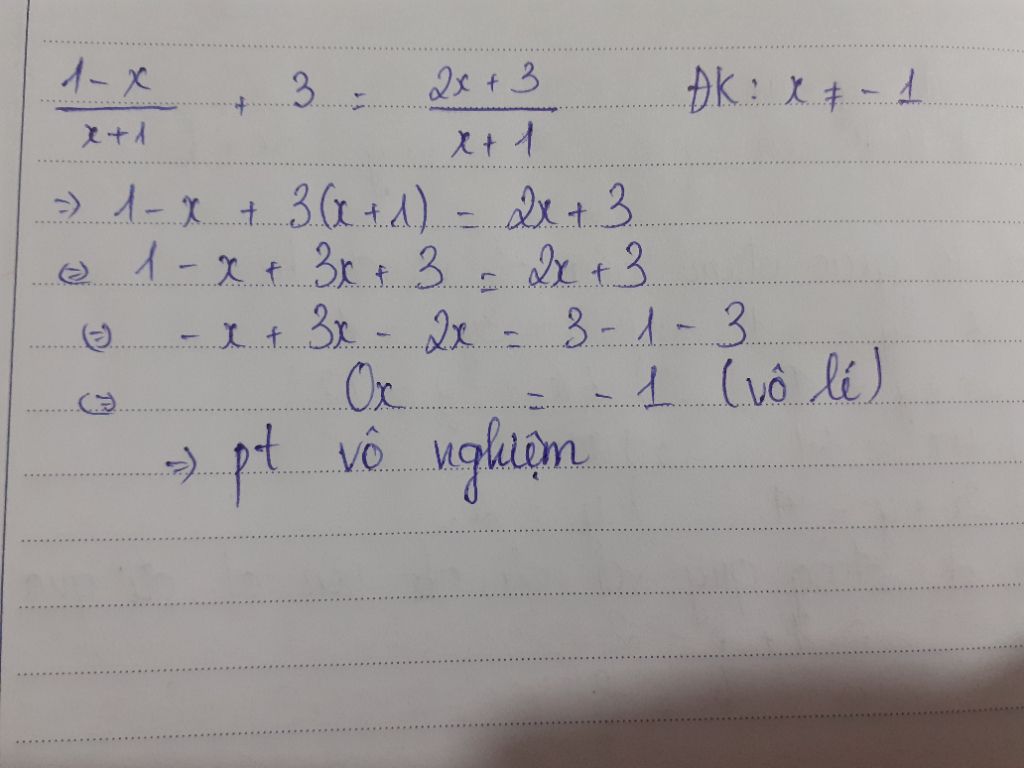 1 - x / x + 1 + 3 = 2x + 3 / x + 1 ĐK: x ≠ - 1
=> 1 - x + 3(x + 1) = 2x + 3
(=) 1 - x + 3x + 3 = 2x + 3
(=) - x + 3x - 2x = 3 - 1 - 3
(=) 0x = - 1 (vô lí)
=> pt vô nghiệm